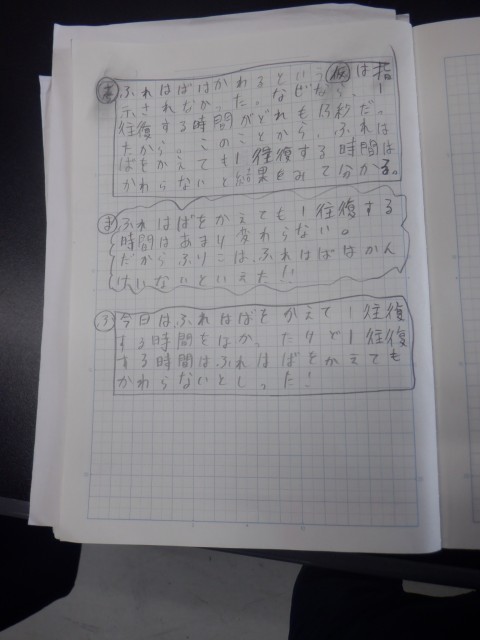 考 ふれはばはかわるという 仮 は指
示されなかった。なぜなら、1
往復する時間がどれも13秒だ
たから。このことから、ふれは
ばをかえても1往復する時間は
かわらないと結果をみて分かる。
ま ふれはばをかえても1往復する
時間はあまり変わらない。
だからふりこはふれはばはかん
けいないといえた!!
ふ 今日はふれはばをかえて1往復
する時間をはかったけど1往復
する時間はふれはばをかえても
かわらないとしった!